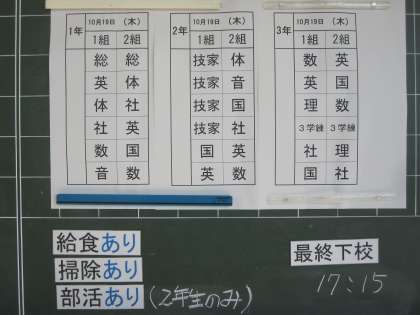 1年 10月19日 (木)
1組 2組
総 総
英 体
体 社
社 英
数 国
音 数
2年 10月19日 (木)
1組 2組
技家 体
技家 音
技家 国
技家 社
国 英
英 数
3年 10月19日 (木)
1組 2組
数 英
英 国
理 数
3学練 3学練
社 理
国 社
給食あり
掃除あり
部活あり(2年生のみ)
最終下校
17:15